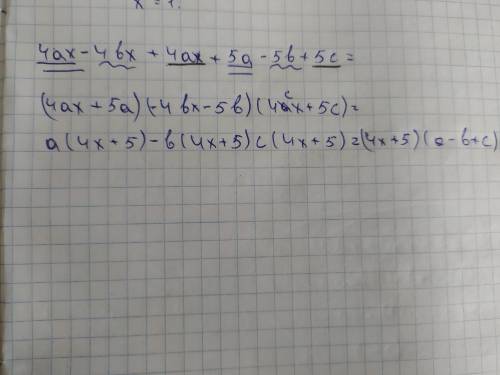 x = 1.
4ax - 4bx + 4ax + 5a - 5b + 5c =
(4ax + 5a) (-4bx - 5b) (4cx + 5c) =
a (4x + 5) - b (4x + 5) c (4x + 5) = (4x + 5) (a - b + c)